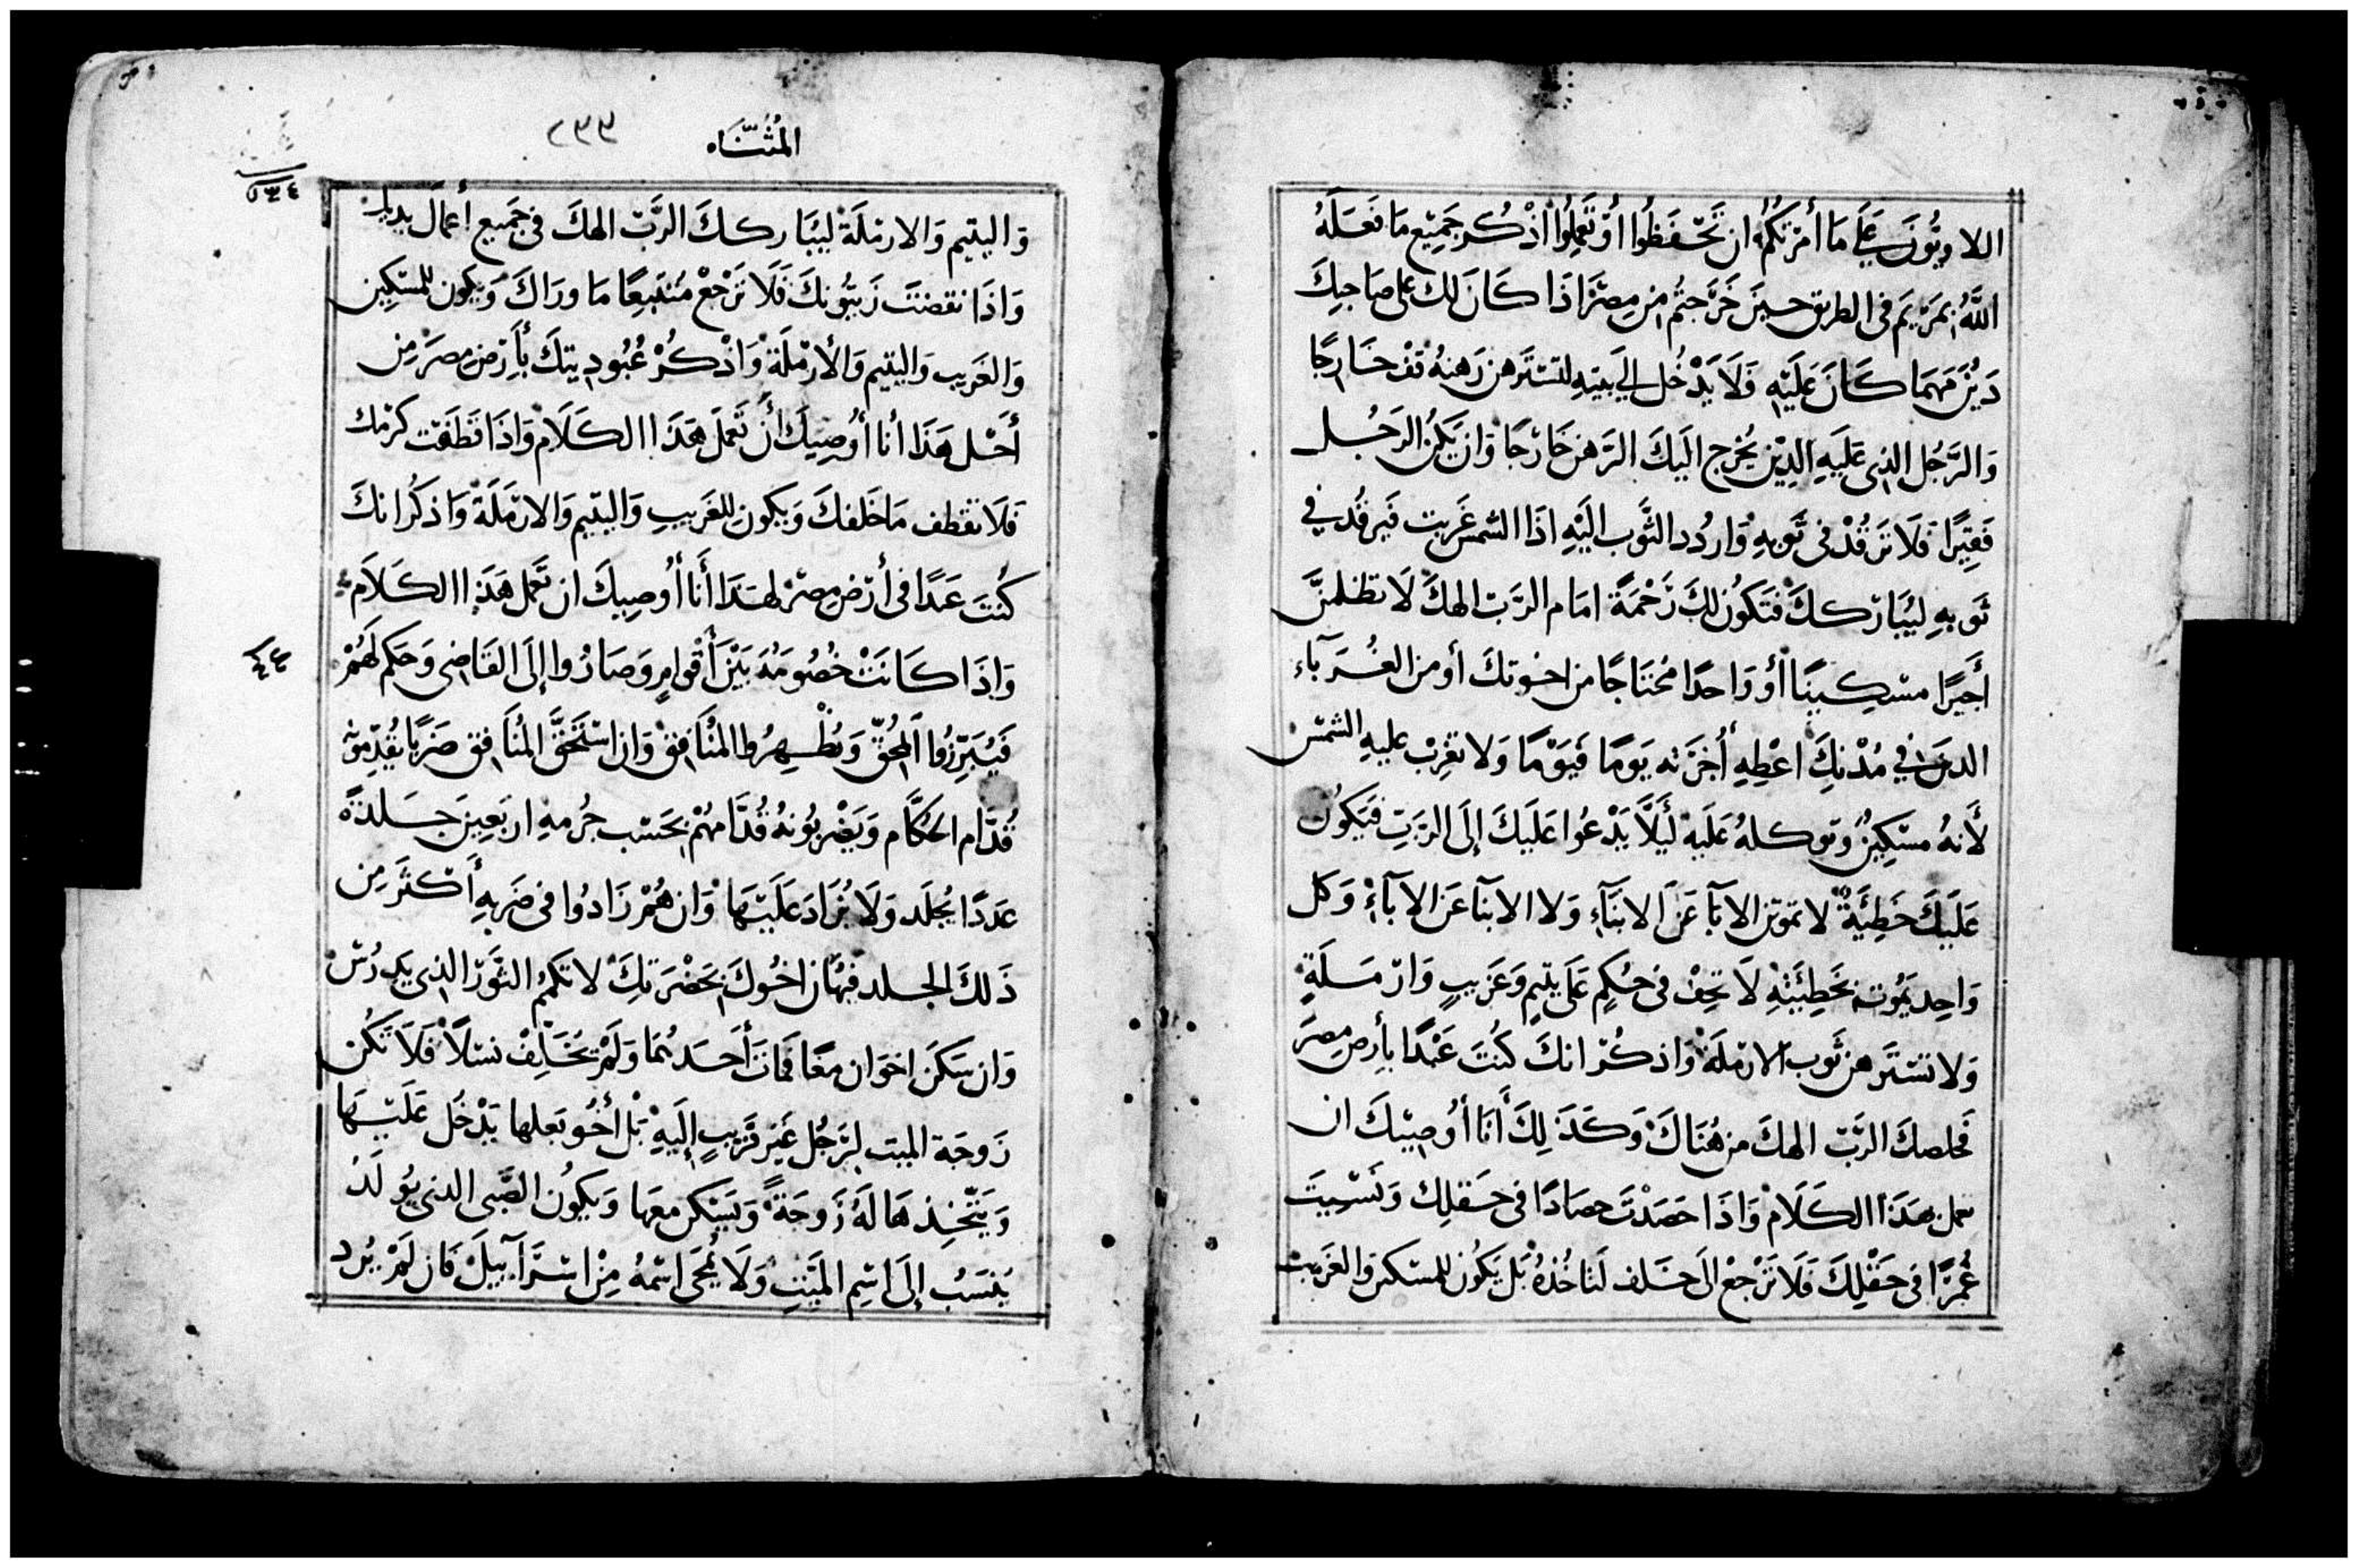 اللاويُّونَ عَلَي مَا أمَرْتكُمُ ان تَحْفَظُوا أوْتَعَملُوا اذْكُر جَمِيْع مَا فَعَلَهُ
اللَّهُ بمَرْيَم فى الطريق حينَ خَرَجتُم مِن مِصْرَ اذَا كَانَ لكَ على صَاحِبِكَ
دَيْنٌ مَهمَا كَانَ عَلَيْهِ فَلَا يَدْخُل الي بيتهِ لتسْتَرهن رَهنهُ قفْ خَارِجًا
وَالرَّجُل الذِى عَلَيهِ الدِيْن يُخْرج اليَكَ الرَهن خَارجًا وَان يَكنُ الرَجُل
فَقِيرًا فَلَا تَرقُدْ فى ثَوبهِ وَاردُد الثَّوب اليَهِ اذَا الشمسُ غَربت فَيَرقُد في
ثَوبهِ ليُبَارككَ فتَكوُن لكَ رَحْمَة امَام الرَبّ الهكَ لَا تظلمنَّ
أَجيرًا مسْكِينًا أوْ وَاحدًا مُحْتَاجًا من اخوتكَ أو من الغُرَبآء
الذينَ في مُدْنكَ اعْطِهِ أُجْرَته يَومًا فيَوْمًا وَلا تغْرِبْ عليهِ الشمْس
لأَنهُ مسْكِينٌ وتوكلهُ عَلَيهْ ليَلَّا يَدْعُوا عَلَيكَ إلَى الرَبّ فيَكوُن
عَلَيكَ خَطِيَّةٌ لا تموتن الابَآ عَنَ الابنَآءِ وَلا الابنَآ عَن الابآءْ وَكل
وَاحِد يَمُوت بخَطِيَّتهِ لَا تحِفْ فى حُكمٍ عَلَى يتيمٍ وَغَريبٍ وَارْمَلَةٍ
وَلا تسْتَرهن ثَوب الارمَلَةْ وَاذكُرْ انكَ كُنتَ عَبْدًا بأرض مِصرَ
فَخلصكَ الرَّبّ الهكَ من هُنَاكَ وَكَذَلِكَ أَنَا أوُصِيْكَ ان
تعمل بهَذَا الكَلَام وَاذَا حَصَدْتَ حصَادًا فى حَقلِك وَنَسْيتَ
غُمرًا فى حَقْلِكَ فَلَا تَرْجعْ الَى خَلف لتَاخُذهُ بَل يَكوُن للمسْكين وَالغَريب
المُثَنَّاه
٢٣٣
وَاليتيم وَالارمْلَةْ ليُبَاركَكَ الرَّبّ الهكَ فى جَميع أعمَال يديكَ
وَاذَا نقضتَ زَيتُونكَ فَلَا تَرْجعْ مُتَتبِعًا مَا ورَاكَ وَيكون للمسْكِين
وَالغَريب وَاليتيم وَالأرمْلَةْ وَاذْكُرْ عُبُودِيتكَ بأَرْض مصرَ مِن
أَجْل هَذَا أنا أوُصِيكَ أنْ تَّعمَل هَذَا الكَلَامْ وَاذَا قَطَفت كَرْمك
فَلَا تقطف مَا خَلفكَ وَيكون للغَريبِ وَاليتيم وَالارْمَلَة وَاذكُر انكَ
كُنتَ عَبدًا فى أرْض مِصْرَ لهَذَا أَنَا أُوصِيكَ ان تَّعمل هَذَا الكَلَام
٢٤
وَاذَا كَانتْ خُصُومَهُ بَيْنَ أَقْوامٍ وَصَارُوا إلَى القَاضِى وَحَكم لَهُمْ
فَيُبَرِّرُوا المُحِقّ وَيُظْهِرُوا المنَُافِق وَان اسْتَحَقَّ المُنَافق ضَربًا يُقدّمونه
قُدَّام الحُكَّام وَيَضْربُونهُ قُدَّامهُمْ بحَسْب جُرمهِ اربَعِينَ جَلدةً
عَدَدًا يُجلَد وَلَا يُزَاد عَلَيْهَا وَان هُمْ زَادُوا فى ضَربهِ أَكثَر مِن
ذَلكَ الجلد فيهُان اخُوكَ بحَضْرَتكَ لا تكمُم الثَّوَر الذِى يَدرُسْ
وَان سَكَنَ اخوَان مَعًا فمَاتَ أَحَدهُمَا وَلَمْ يُخَلِفْ نسْلاً فَلَا تَكُن
زَوجَة الميت لرَجُل غَيْر قَريبٍ إلَيهِْ بَلْ أخُو بَعلها يَدْخُل عَلَيْهَا
وَيَتّخِذهَا لَهُ زَوجَةً وَيَسْكن معهَا وَيكُون الصَّبى الذى يوُلَدْ
يُنسَبُ إلَى اسْمِ المَيّتِ وَلَا يُمحَى اسْمهُ مِنْ اسْرَآئيلَ فَان لَمْ يُرد